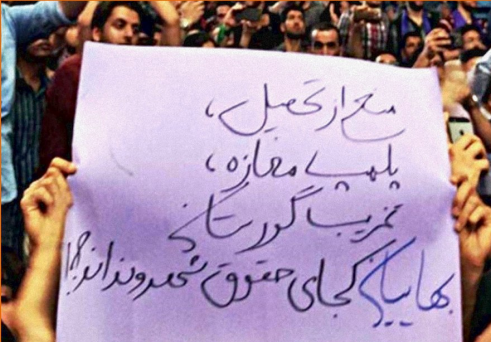 منع از تحصیل،
پلمپ مغازه،
تخریب گورستان
بهاییان کجای حقوق شهروندیاند؟!